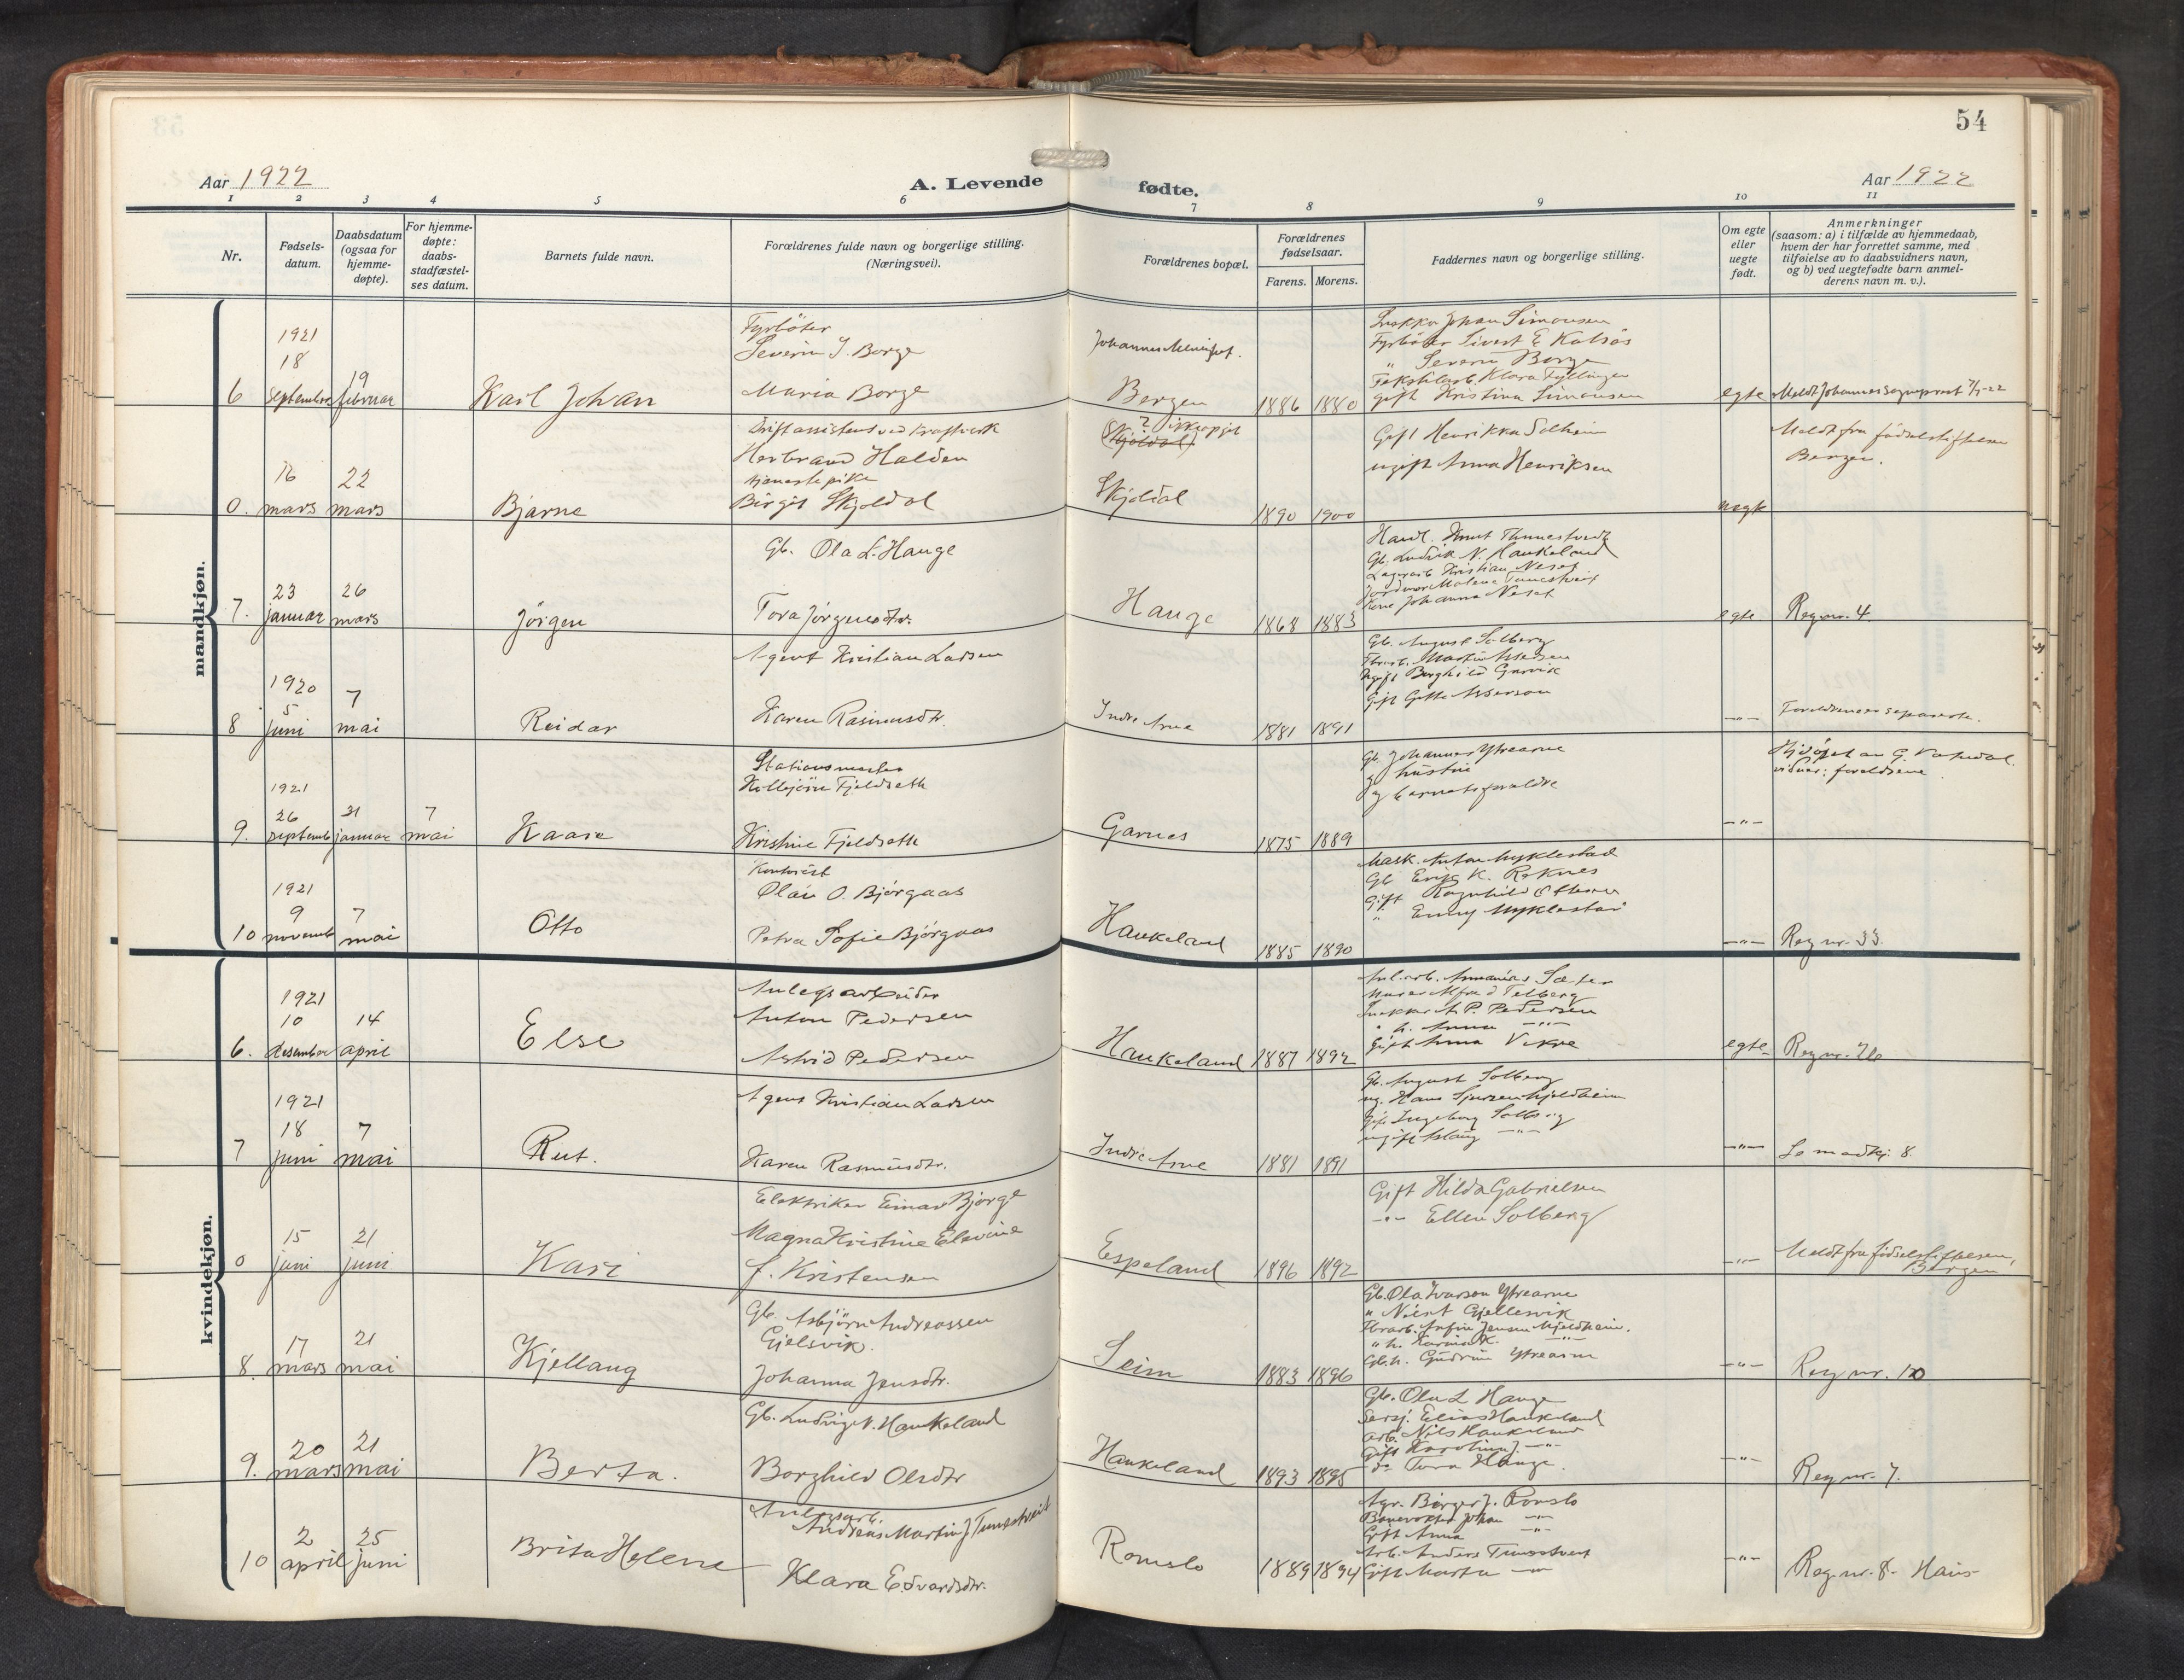 54
Aar 1922
A. Levende fødte.
Aar 1922
1 2 3 4 5 6 7 8 9 10 11
Nr.
Fødsels-
datum.
Daabsdatum
(ogsaa for
hjemme-
døpte).
For hjemme-
døpte:
daabs-
stadfæstel-
ses datum.
Barnets fulde navn.
Forældrenes fulde navn og borgerlige stilling.
(Næringsvei).
Forældrenes bopæl.
Forældrenes
fødselsaar.
Farens. Morens.
Faddernes navn og borgerlige stilling.
Om egte
eller
uegte
født.
Anmerkninger
(saasom: a) i tilfælde av hjemmedaab,
hvem der har forrettet samme, med
tilføielse av to daabsvidners navn,
og b) ved uegtefødte barn anmel-
derens navn m. v.).
mandkjøn.
6
1921
18
september
19
februar
Karl Johan
Fyrbøter
Severin J. Borge
Maria Borge
Bergen
1886 1880
Johan Simonsen
Fyrbøter Sivert E
" Severin Borge
Klara Tyllingen
gift Kristina Simonsen
egte
0.
16
mars
22
mars
Bjarne
Driftassistent ved kraftverk
Herbrand Halden
tjenestepike
Birgit Skjoldal
(Skjoldal)
Skjoldal
1890 1900
Gift Henrikka Solheim
ugift Anna Henriksen
uegte
Meldt fra fødselstiftelsen
Bergen.
7.
23
januar
26
mars
Jørgen
Gb. Ola L. Hauge
Tora Jørgensdtr.
Hauge
1868 1883
Handl. Knut Tunestveit
Gb. Ludvik N. Haukeland
Kristian Neset
Jordmor Malene Tunestveit
Kone Johanna Neset
egte
Reg nr. 4.
8
1920
5
juni
7
mai
Reidar
Agent Kristian Larsen
Karen Rasmusdtr.
Indre Arne
1881 1891
Gb. August Solberg
Ugift Borghild Garvik
Gift
-"-
Forældrene er separerte.
9.
1921
26
septemb
31
januar
7
mai
Kaare
Stationsmester
Kolbjörn Fjeldseth
Kristine Fjeldseth
Garnes
1875 1889
Gb. Johannes Ytrearne
og hustru
og barnets foreldre
-"-
Hjdøpt av G. Vaksdal.
vidner: foreldrene
10
1921
9
novemb
7
mai
Otto
Kontorist
Olav O. Bjørgaas
Petra Sofie Bjørgaas
Haukeland
1885 1890
Mask. Anton Myklestad
Gb Erik K. Roknes
Gift Ragnhild
" Emmy Myklestad
-"-
Reg nr. 33.
kvindekjøn.
6.
1921
10
desember
14
april
Else
Anlegsarbeider
Anton Pedersen
Astrid Pedersen
Haukeland
1887 1892
Anl.arb. Ananias Sæter
Murer Alfred Telberg
Snekker A P. Pedersen
" h. Anna -"-
Gift Anna Vikne
egte
Reg nr. 26
7
1921
18
juni
7
mai
Rut.
Agent Kristian Larsen
Karen Rasmusdtr.
Indre Arne
1881 1891
Gb. August Solberg
ug. Hans Sjursen Mjeldheim
Gift Ingeborg Solberg
ugift Aslaug -"-
-"-
Se mandkj. 8.
0
15
juni
21
juni
Kari
Elektriker Einar Bjørge
Magna Kristine Elevine
f. Kristensen
Espeland
1896 1892
Gift Hilda Gabrielsen
-"- Ellen Solberg
-"-
Meldt fra fødselstiftelsen,
Bergen
8.
17
mars
21
mai
Kjellaug
Gb. Asbjørn Andreassen
Gjelsvik.
Johanna Jensdtr.
Seim
1883 1896
Gb. Ola Ivarson Ytrearne
" Nils Gjellesvik
Fbrarb. Arfin Jensen Mjeldheim.
" h. Karina K. -"-
Gb.h. Gudrun Ytrearne
-"-
Reg nr. 10
9.
20
mars
21
mai
Berta.
Gb. Ludvig N. Haukeland
Borghild Olsdtr
Haukeland
1893 1895
Gb. Ola L Hauge
Sersj. Elias Haukeland
arb. Nils Haukeland
Gift Karolina J. -"-
do Tora Hauge.
-"-
Reg nr. 7.
10
2
april
25
juni
Brita Helene
Anlegsarb.
Andreas Martin J Tunestveit
Klara Edvardsdtr.
Romslo
1889 1894
Agr. Birger J. Romslo
Banevokter Johan -"-
Gift Anna -"-
Arb. Anders Tunestveit
Gift Marta -"-
-"-
Reg nr. 8. Haus